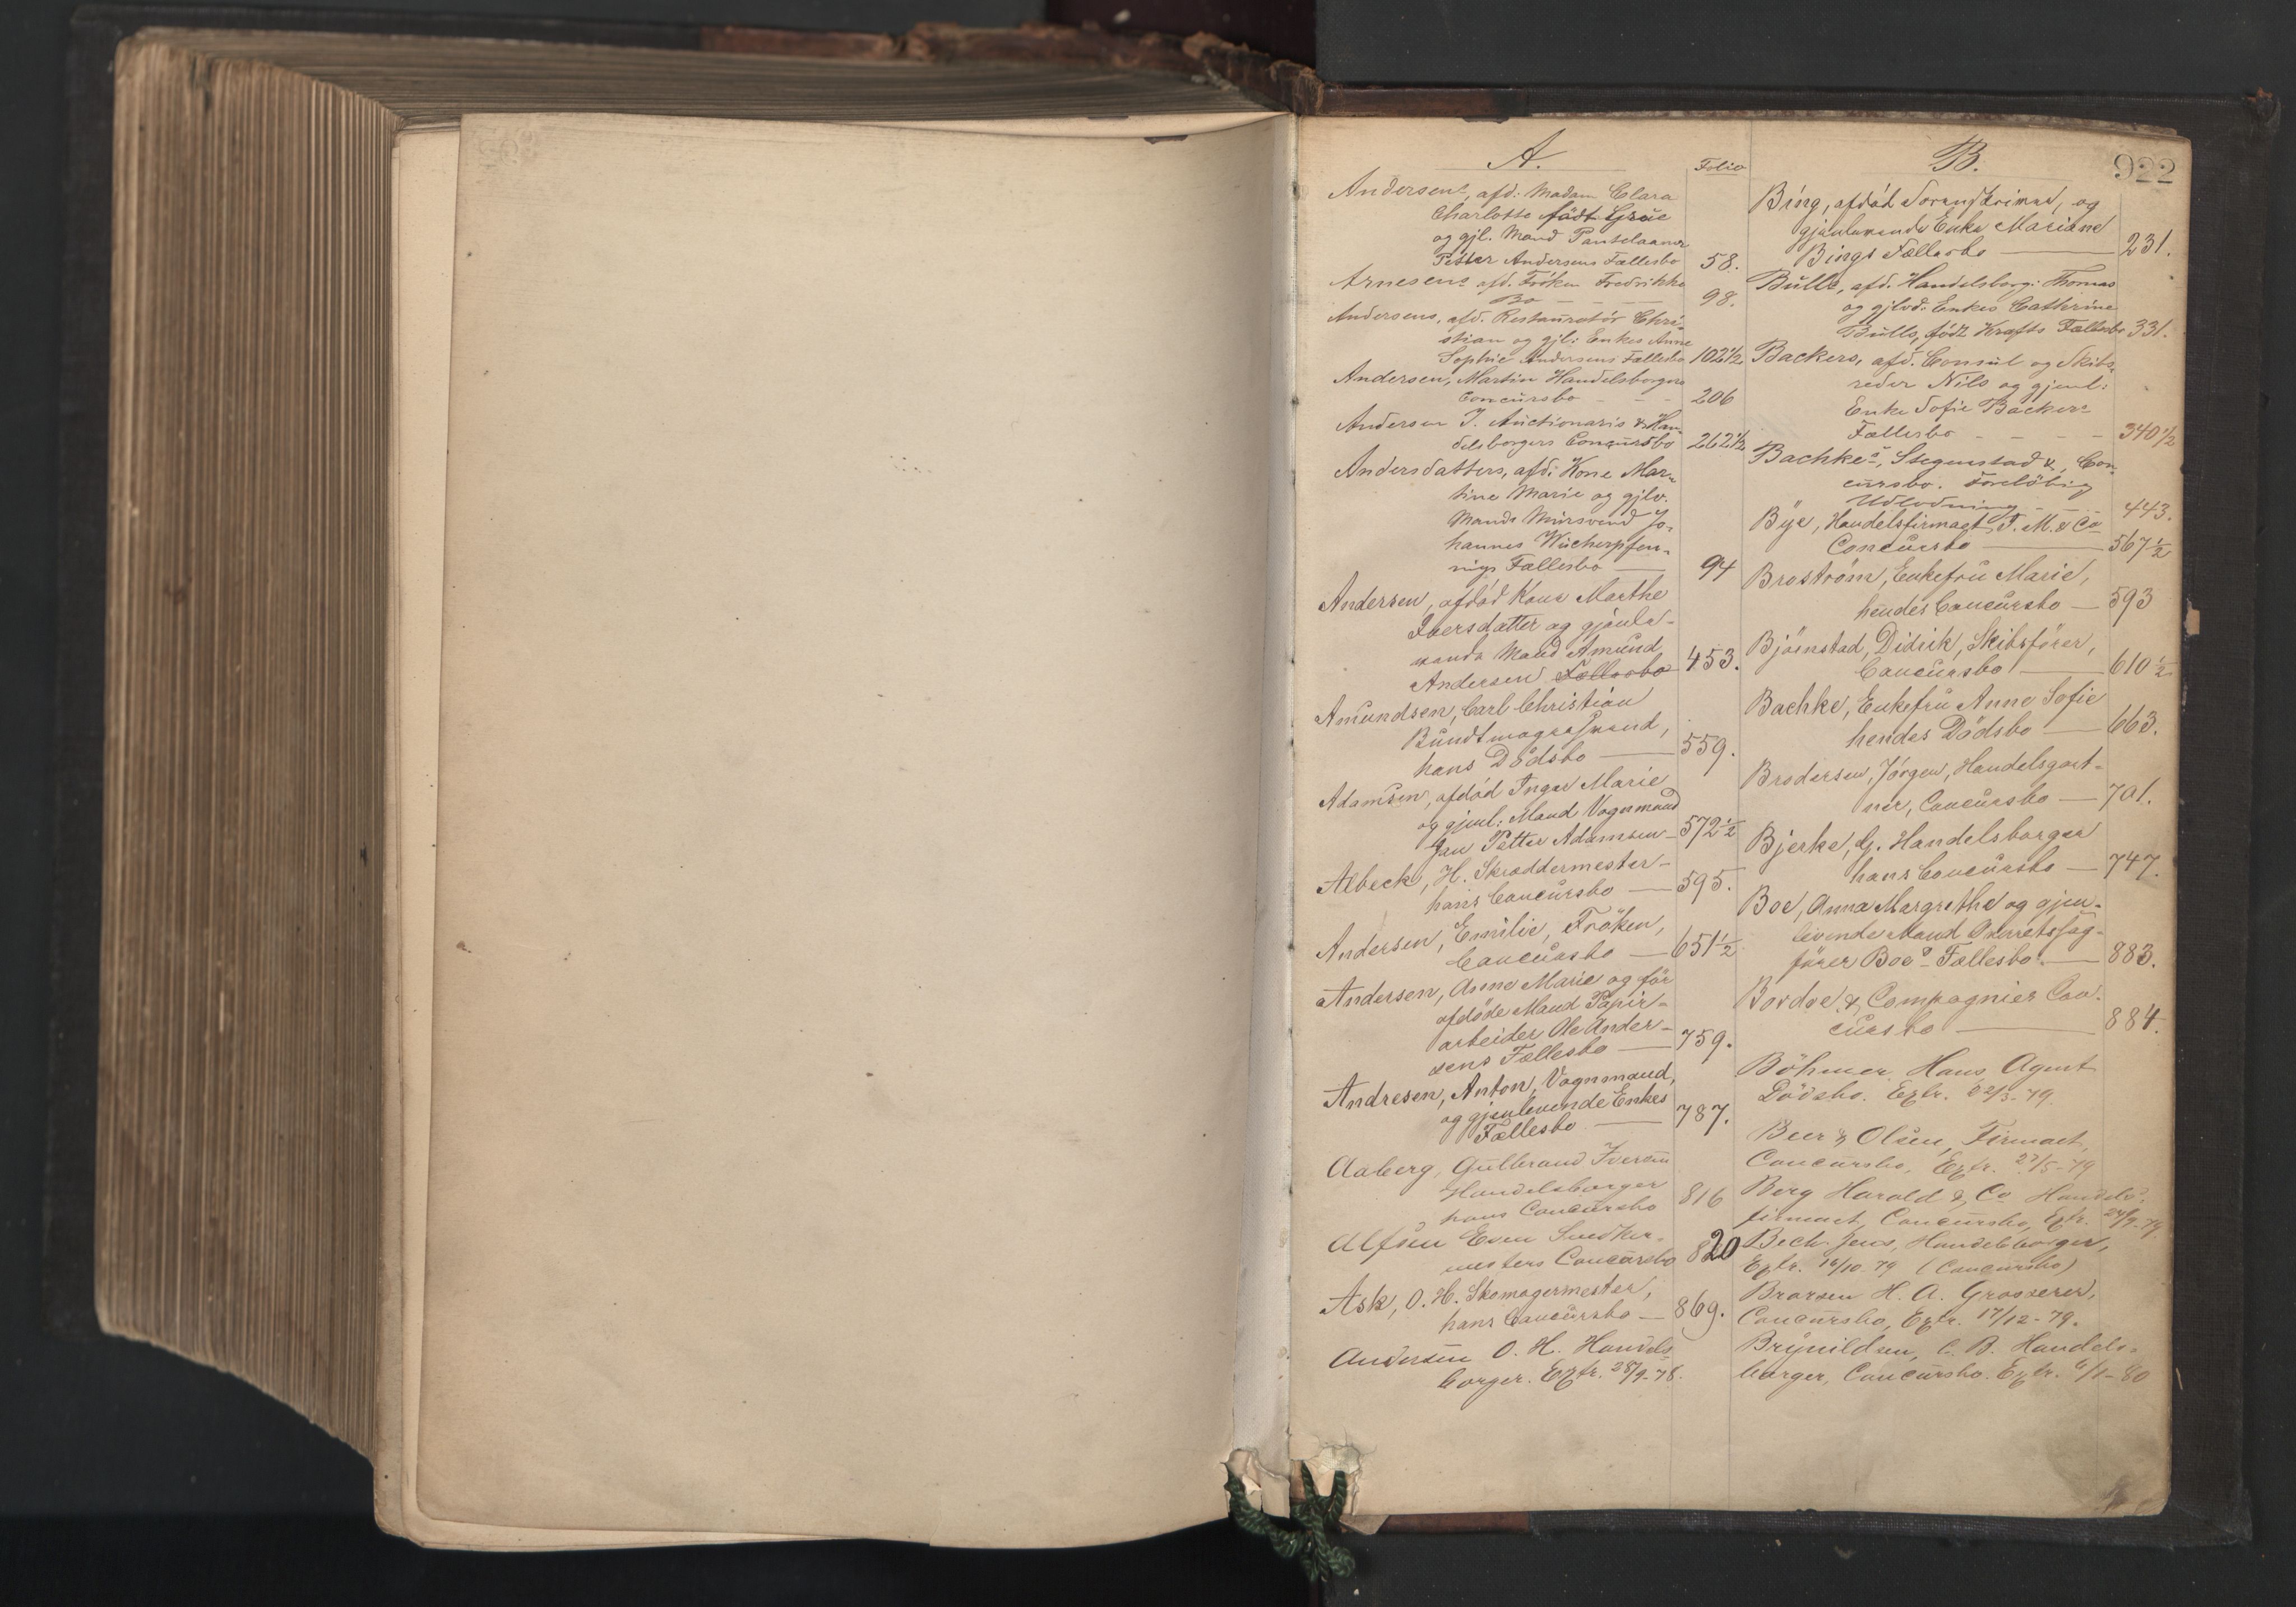 922
A.
Folio
Andersens, afd. Madam Clara
Charlotte födt Grüe
og gjl. Mand Pantelaaner
Petter Andersens Fællesbo 58.
Arnesens afd. Fröken Fredrikke
Bo - - - 98.
Andersens, afd. Restauratör Chri-
stian og gjl: Enkes Anne
Sophie Andersens Fællesbo 102 1/2
Andersen, Martin Handelsborgers
Concursbo - - - 206
Andersen J. Auctionaris & Han-
delsborgers Concursbo 262 1/2
Andersdatters, afd. Kone Mar-
tine Marie og gjlv.
Mands Mursvend Jo-
hannes Wücherpfen-
nigs Fællesbo — 94
Andersen, afdöd Kone Marthe
Iversdatter og gjenle-
vende Mand Amund
Andersen Fællesbo 453.
Amundsen, Carl Christian
Bundtmagersvend,
hans Dödsbo — 559.
Adamsen, afdöd Inger Marie
og gjenl: Mand Vognmand
Jan Petter Adamsen — 572 1/2
Albeck, H. Skræddermester-
hans Concursbo — 595.
Andersen, Emilie, Fröken,
Concursbo — 651 1/2
Andersen, Anne Marie og för
afdöde Mand Papir-
arbeider Ole Ander-
sens Fællesbo — 759.
Andresen, Anton, Vognmand,
og gjenlevende Enkes
Fællesbo — 787.
Aaberg, Gulbrand Iversen
Handelsborger
hans Concursbo 816
Alfsen Even Snedker-
mesters Concursbo 820
Ask, O. H. Skomagermester,
hans Concursbo — 869.
Andersen O. H. Handels
borger. Extr. 28/9-78.
B.
Bing, afdöd Sorenskriver, og
gjenlevende Enke Mariane
Bings Fællesbo — 231.
Bulls, afd. Handelsborg: Thomas
og gjlvd. Enkes Cathrine
Bulls, födt Krafts Fællesbo 331.
Backers, afd. Consul og Skibs-
reder Nils og gjenl:
Enke Sofie Backers
Fællesbo - - - - 340 1/2
Bachkes, Stegenstad &, Con-
cursbo. Forelöbig
Udlodning - - - 443.
Bye, Handelsfirmaet, T. M. & Co
Concursbo — 567 1/2
Broström, Enkefru Marie,
hendes Concursbo — 593
Björnstad, Didrik, Skibsförer,
Concursbo — 610 1/2
Bachke, Enkefru Anne Sofie
hendes Dödsbo — 663.
Brodersen, Jörgen, Handelsgart-
ner, Concursbo — 701.
Bjerke, G. Handelsborger
hans Concursbo — 747.
Boe, Anna Margrethe og gjen-
levende Mand Overretssag-
förer Boes Fællesbo — 883.
Bordoe & Compagnies Con-
cursbo — 884.
Böhmer Hans Agent
Dödsbo. Extr. 22/3-79.
Beer & Olsen, Firmaet,
Concursbo, Extr. 27/5-79
Berg Harald & Co Handels-
firmaet, Concursbo, Extr. 24/9-79
Bech Jens, Handelsborger,
Extr. 16/10-79 (Concursbo)
Brorsen H. A. Grosserer,
Concursbo, Extr. 17/12-79.
Brynildsen, C. B. Handels-
borger, Concursbo. Extr. 6/1-80